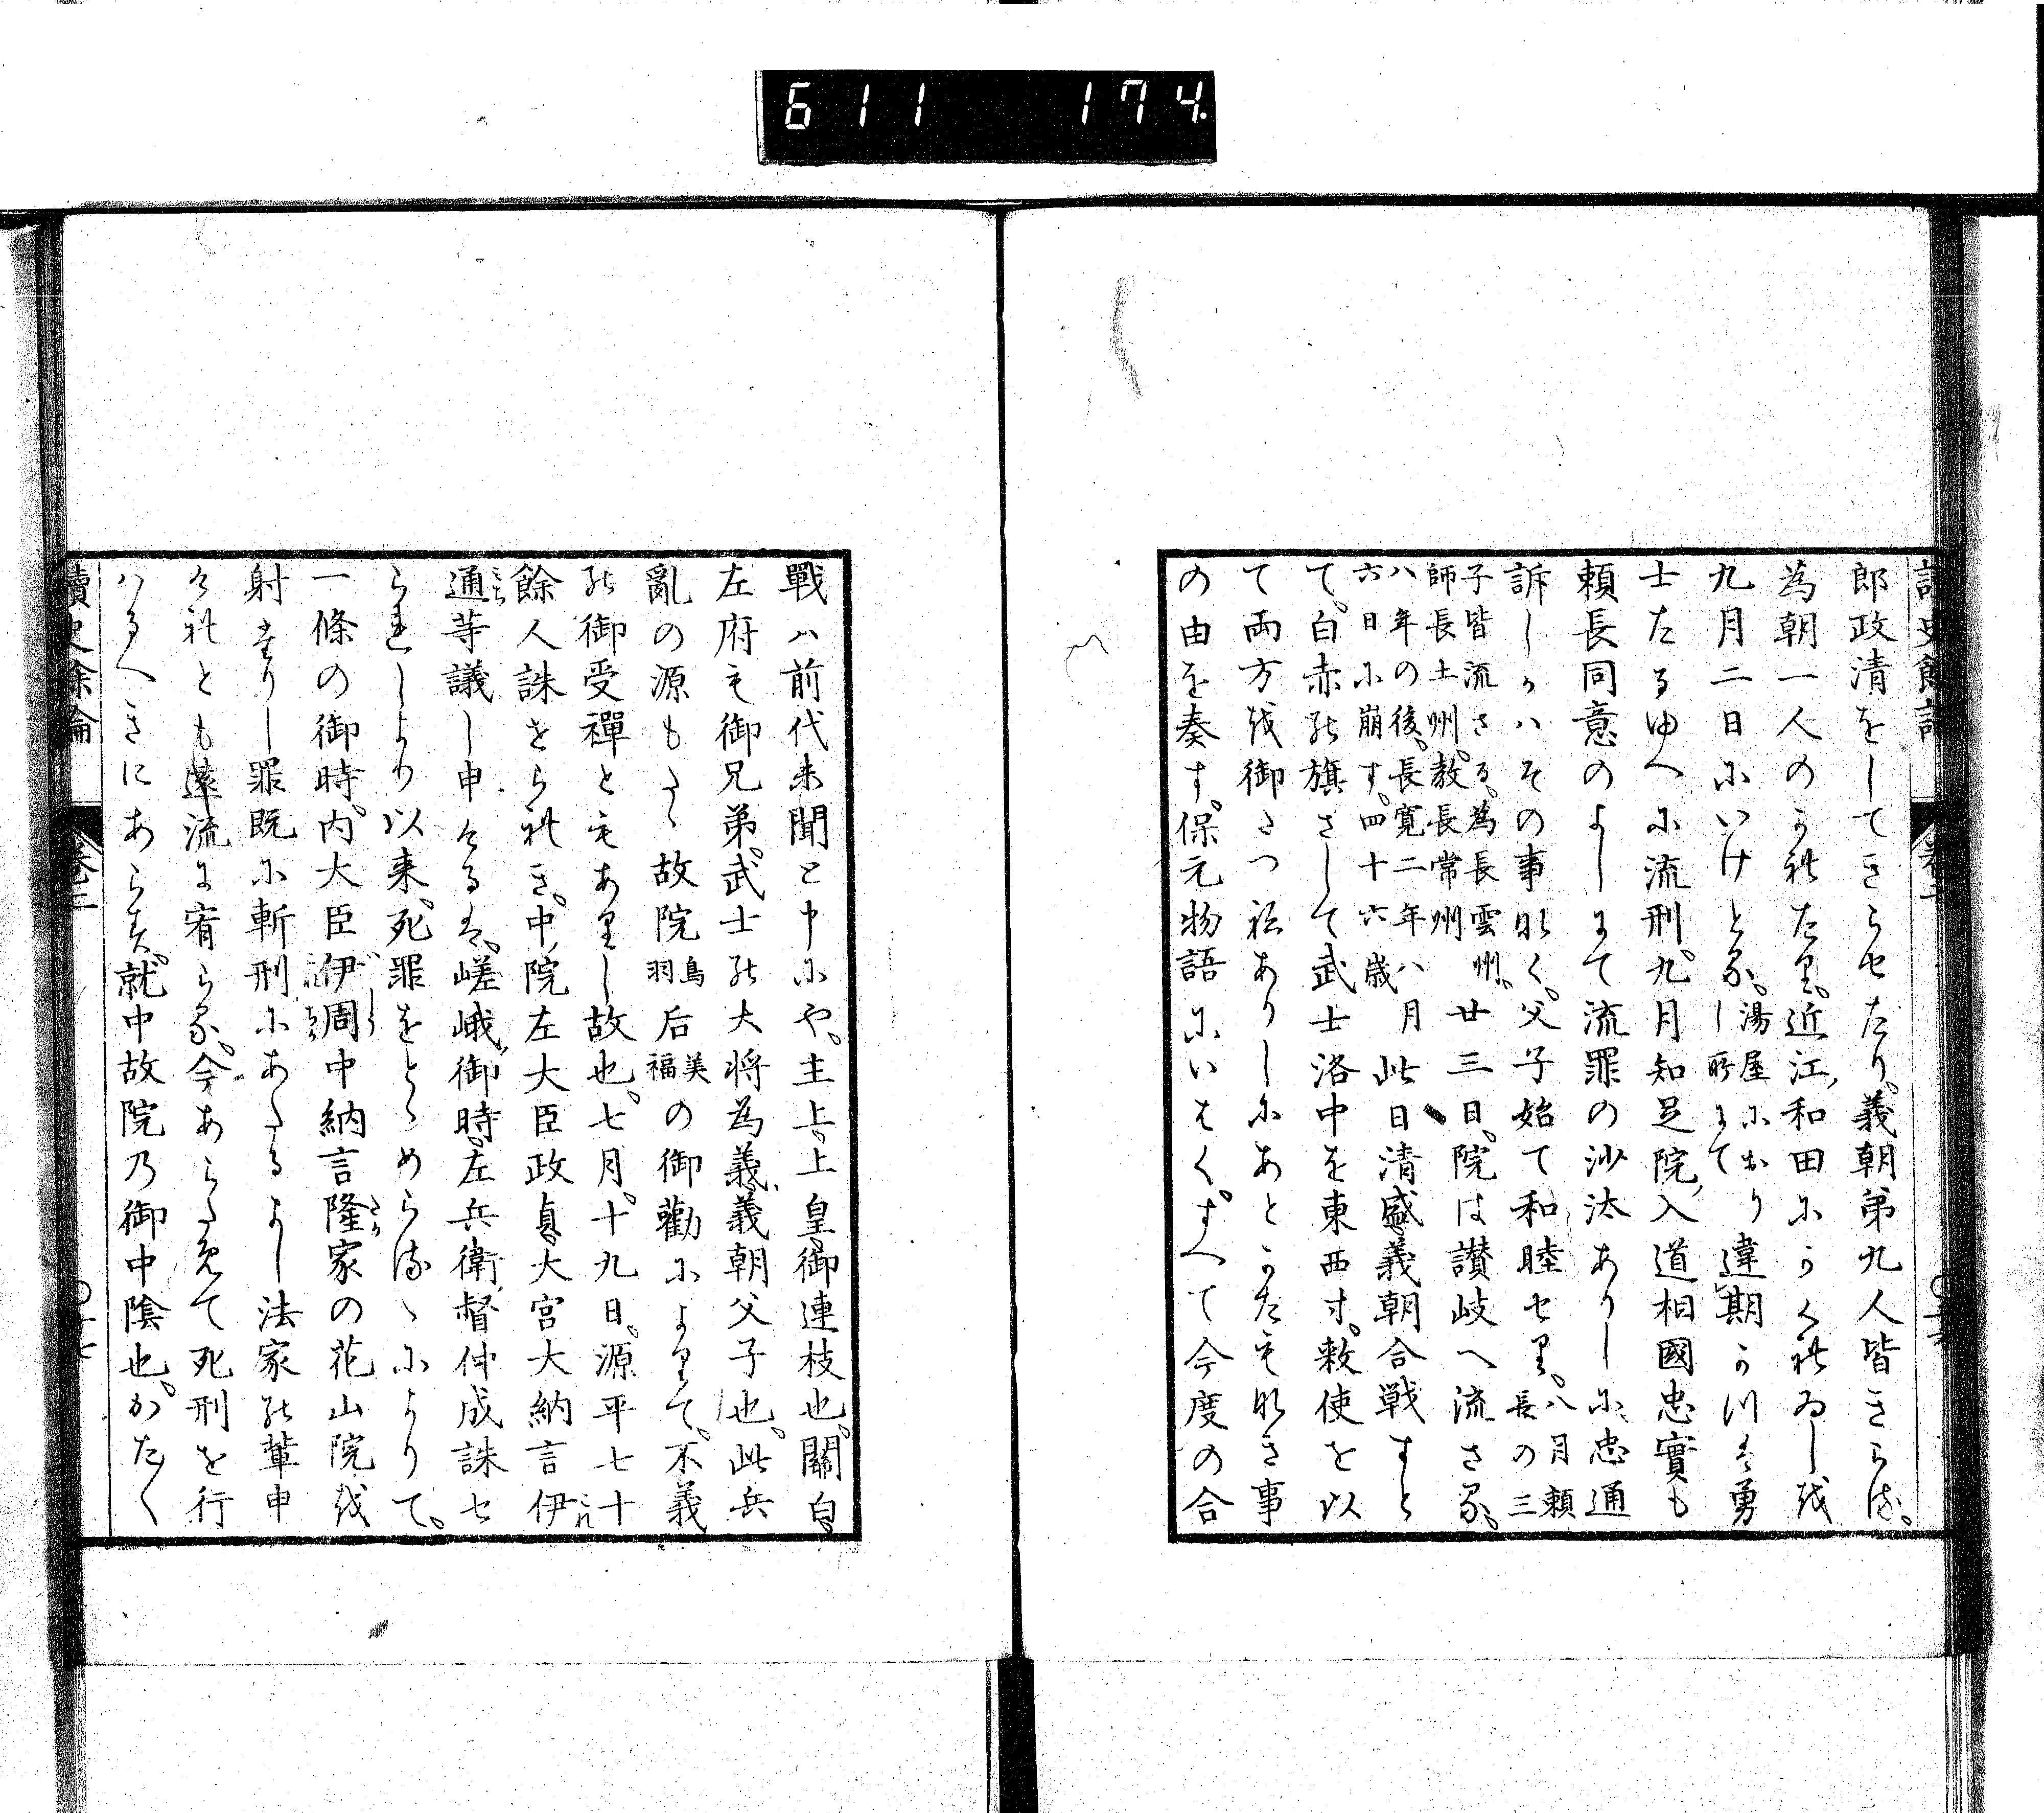 611 174.
郎政清をしてきらせたり。義朝弟九人皆きらる。
為朝一人のこれたり。近江、和田にかくれゐしを
九月二日にいけとる。湯屋におりし所にて違期かつは勇
士たるゆへに流刑。九月知足院、入道相國忠實も
頼長同意のよしにて流罪の沙汰ありしに、忠通
訴しかはその事なく。父子始て和睦せり。八月頼長の三
子皆流さる、為長雲州。師長土州。教長常州廿三日。院は讃岐へ流さる。
八年の後、長寛二年八月六日に崩す。四十六歳此日清盛義朝合戦すと
て。白赤の旗さして武士洛中を東西す。敕使を以
て両方を御たつねありしにあとかたもなき事
の由を奏す。保元物語にいはく。すへて今度の合
戰ハ前代未聞と申にや。主上。上皇。御連枝也。關白。
左府も御兄弟。武士の大将為義、義朝父子也。此兵
亂の源もたゝ故院鳥羽后美福の御勸によりて。不義
の御受禪ともありし故也。七月。十九日。源平七十
餘人誅せられき。中、院左大臣政眞。大宮大納言伊
通等議し申けるは。嵯峨、御時。左兵衛、督仲成誅せ
られしより以来。死罪をとゝめらるゝによりて。
一條の御時。内大臣伊周中納言隆家の花山院を
射奉りし罪既に斬刑にあたるよし法家の輩申
けれとも遠流に宥らる。今あらためて死刑を行
ハるへきにあらす。就中故院乃御中陰也。かたく
讀史餘論 卷二